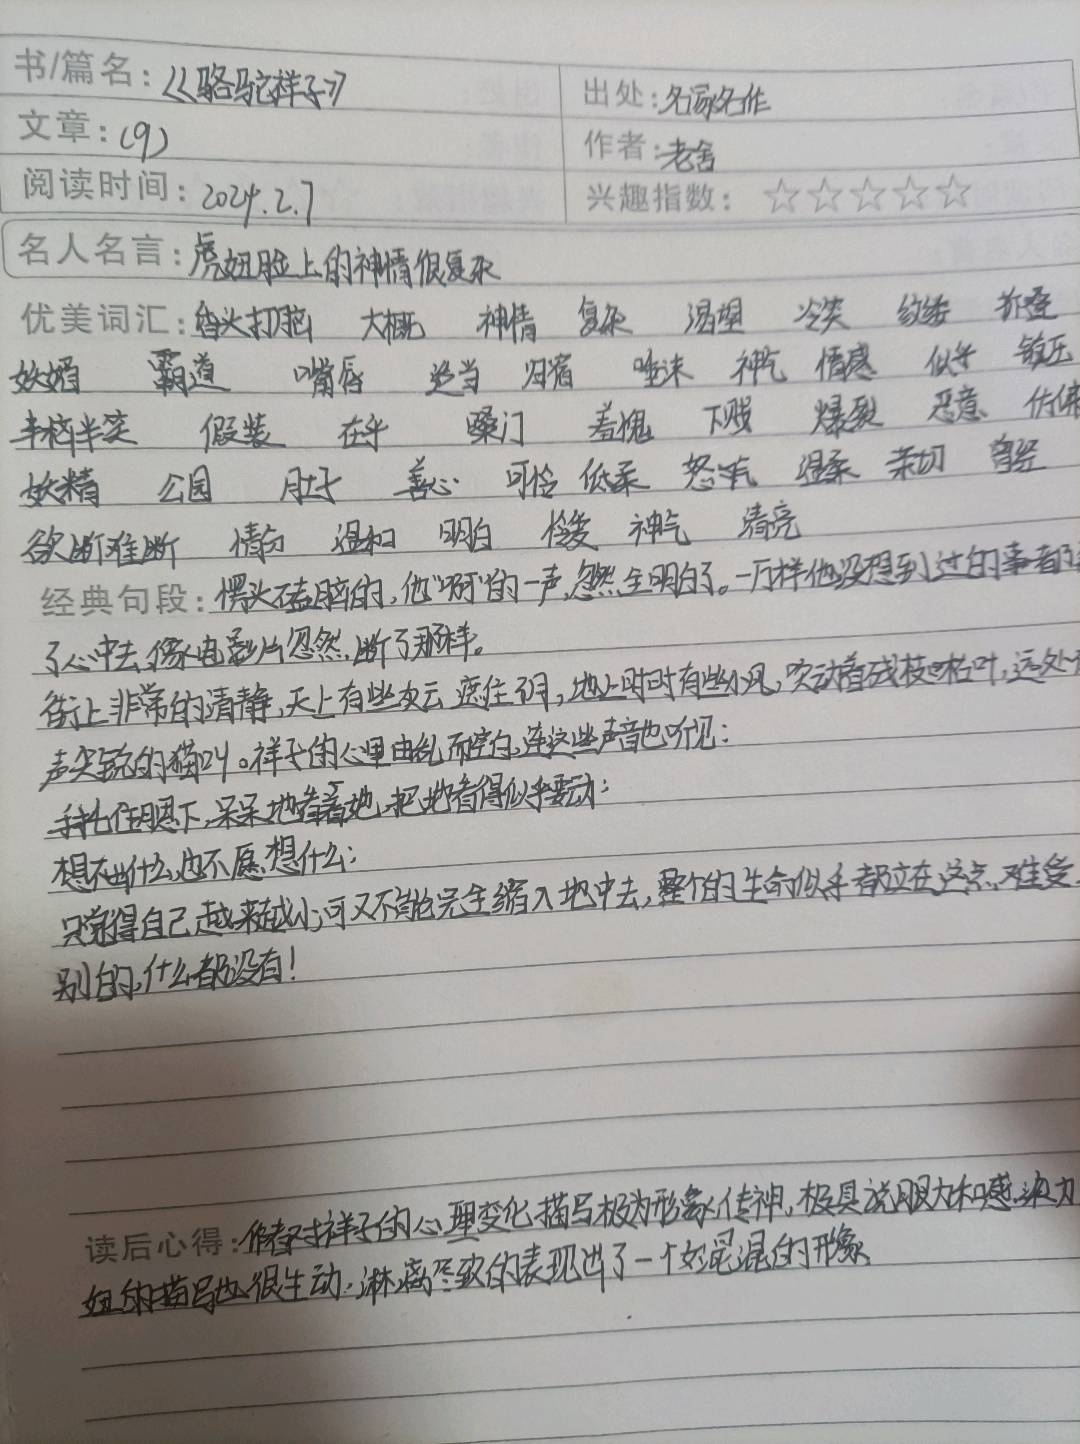 书/篇名：《骆驼祥子》 出处：名家名作
文章：（9） 作者：老舍
阅读时间：2024.2.7 兴趣指数：☆☆☆☆☆
名人名言：虎妞脸上的神情很复杂
优美词汇：昏头打脑 大概 神情 复杂 渴望 冷笑 折叠
妖媚 霸道 嘴唇 适当 归宿 唾沫 神气 情感 似乎
半恼半笑 假装 在乎 嗓门 羞愧 下贱 爆裂 恶意
妖精 公园 肚子 善心 可怜 低柔 怒气 温柔 亲切
欲断难断 温和 明白 神气 清亮
经典句段：愣头磕脑的，他“啊”的一声，忽然全明白了。一万样他没想到过的事都
了心中去，像电影片忽然断了那样。
街上非常的清静，天上有些灰云遮住了月，地上时时有些小风，吹动着残枝枯叶，远处
声尖锐的猫叫。祥子的心里由乱而空白，连这些声音也听见；
手托住腮下，呆呆地看着她，把她看得似乎要动；
想不出什么，也不愿想什么；
只觉得自己越来越小，可又不能完全缩入地中去，整个的生命似乎都立在这点难受
别的，什么都没有！
读后心得：作者对祥子的心理变化描写极为形象传神，极具说服力和感染力
妞的描写也很生动，淋漓尽致的表现出了一个的形象